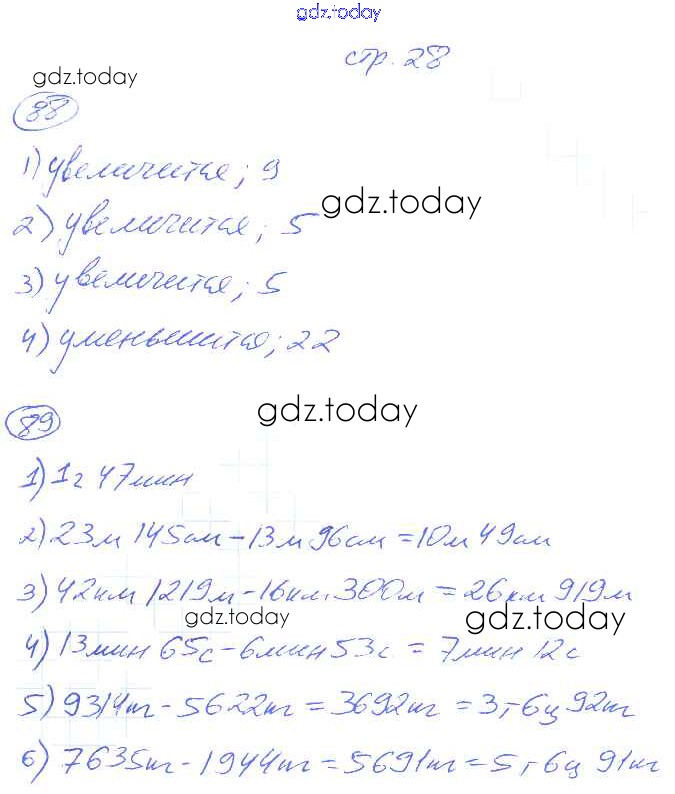 gdz.today
стр. 28
gdz.today
88
1) увеличится; 9
gdz.today
2) увеличится; 5
3) увеличится; 5
4) уменьшится; 22
gdz.today
89
1) 1г 47мин
2) 23м 145см - 13м 96см = 10м 49см
3) 42км 1219м - 16км 300м = 26км 919м
gdz.today
gdz.today
4) 13мин 65с - 6мин 53с = 7мин 12с
5) 9314кг - 5622кг = 3692кг = 3т 6ц 92кг
6) 7635кг - 1944кг = 5691кг = 5т 6ц 91кг